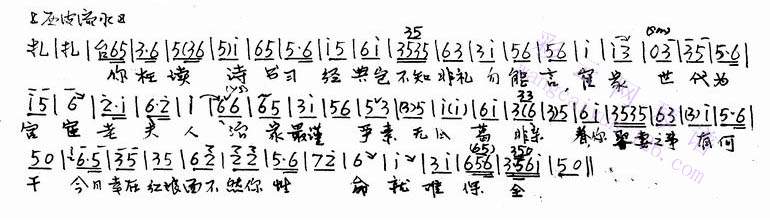 【西皮流水】
扎|扎|台65|3·6|5(36|5)i|65|5·6|i5|6i|3535|63|3i|56|56|i|i3|03|35|5·6|
你枉读 诗书习 经典岂不知非礼勿能言,崔家 世代为
i5|6|2·i|6·2|i|66|65|3i|56|53|(3)5|i(i)|6i|3(6|3)5|6i|3535|63|(3)i|5·6|
官宦老夫人治家最谨 严素无瓜葛非亲 眷你娶妻之事有何
50|6·5|35|35|62|22|5·6|72|6|i|3i|656|356i|50‖
干 今日幸在红娘面不然你性 命就难保全